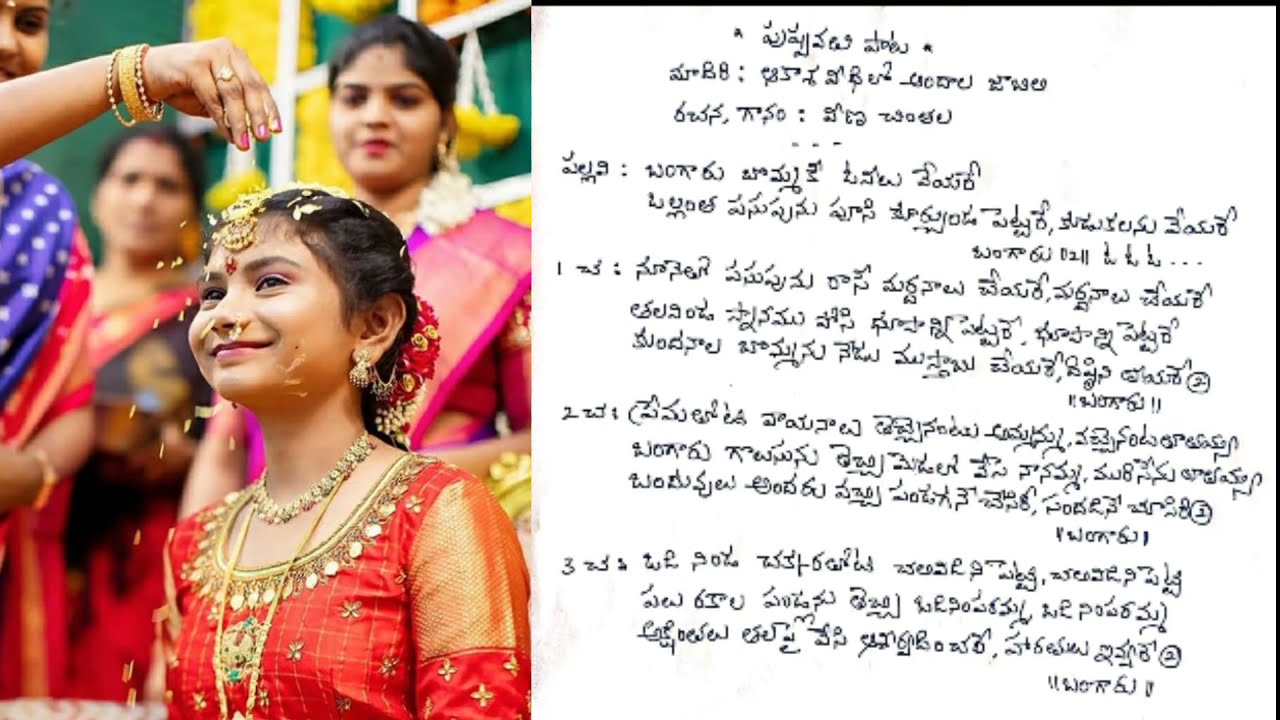 * పుష్పవతి పాట *
మాదిరి : ఆకాశ వీధిలో అందాల జాబిలి
రచన, గానం : వీణ చింతల
- - -
పల్లవి : బంగారు బొమ్మకి ఓనలు వేయరే
ఒల్లంత పసుపును పూసి కూర్చుండ పెట్టరే, కుడుకలను వేయరే
బంగారు ॥2॥ ఓ ఓ ఓ ...
1 చ : నూనెతో పసుపును రాసి మర్దనాలు చేయరే, మర్దనాలు చేయరే
తలనిండ స్నానము పోసి ధూపాన్ని పెట్టరే, ధూపాన్ని పెట్టరే
కుందనాల బొమ్మను నేడు ముస్తాబు చేయరే, దిష్టిని తీయరే ②
॥బంగారు॥
2 చ : ప్రేమతోటి వాయనాలు తెచ్చెనంటు అమ్మమ్మ, వచ్చెనంట తాతయ్య
బంగారు గొలుసును తెచ్చి మెడలో వేసె నానమ్మ, మురిసేను తాతయ్య
బంధువులు అందరు వచ్చి పండగనే చేసిరి, సందడినే చూసిరి ②
॥బంగారు॥
3 చ : ఒడి నిండ చక్కెరతోటి చలివిడిని పెట్టి, చలివిడిని పెట్టి
పలు రకాల పండ్లను తెచ్చి ఒడినింపరమ్మ, ఒడి నింపరమ్మ
అక్షింతలు తలపై వేసి ఆశీర్వదించరే, హారతులు ఇవ్వరే ②
॥బంగారు॥